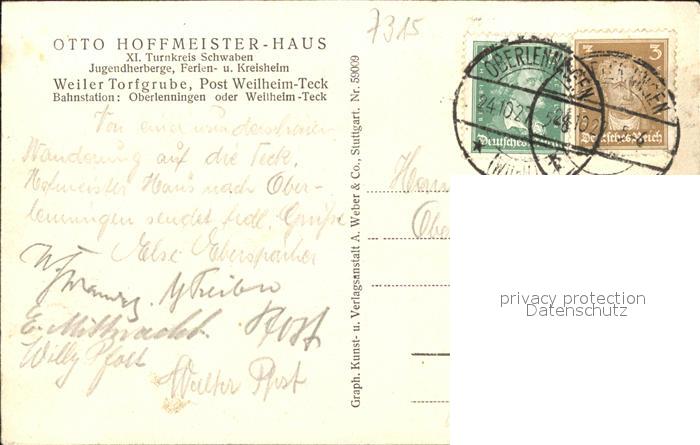 7315
OTTO HOFFMEISTER-HAUS
XI. Turnkreis Schwaben
Jugendherberge, Ferien- u. Kreisheim
Weiler Torfgrube, Post Weilheim-Teck
Bahnstation: Oberlenningen oder Weilheim-Teck
Von einer wunderschönen
Wanderung auf die Teck,
Hofmeister Haus nach Ober-
lenningen sendet frdl. Grüße
Else Eberspächer
E. Mittnacht. Pfost
Willy Pfost
Walter Pfost
Graph. Kunst- u. Verlagsanstalt A. Weber & Co., Stuttgart. Nr. 59009
OBERLENNINGEN
24.10.27
3 3
Deutsches Reich
Deutsches Reich
privacy protection
Datenschutz